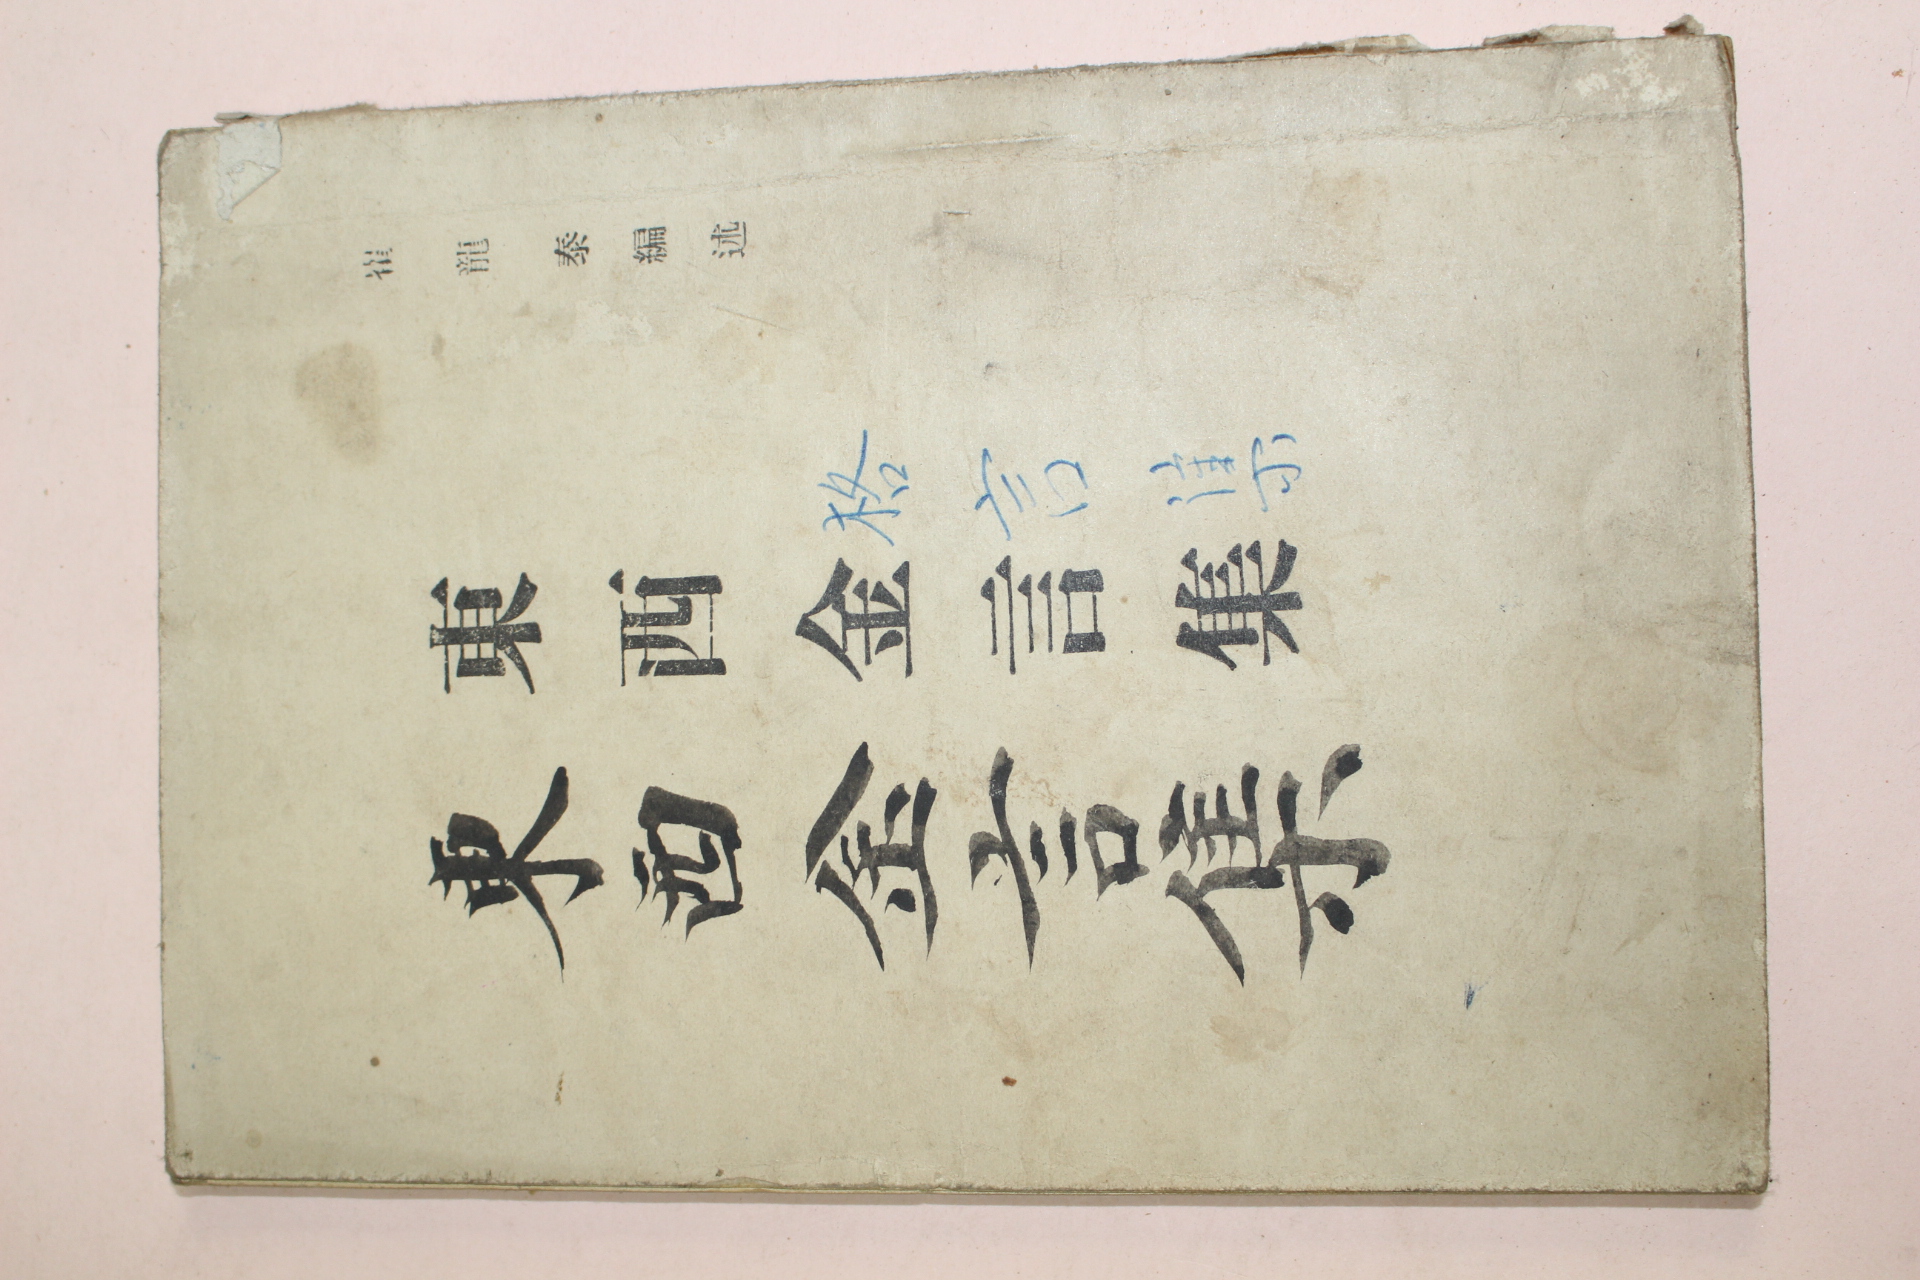 崔龍泰編述
格言集
東西金言集
東西金言集